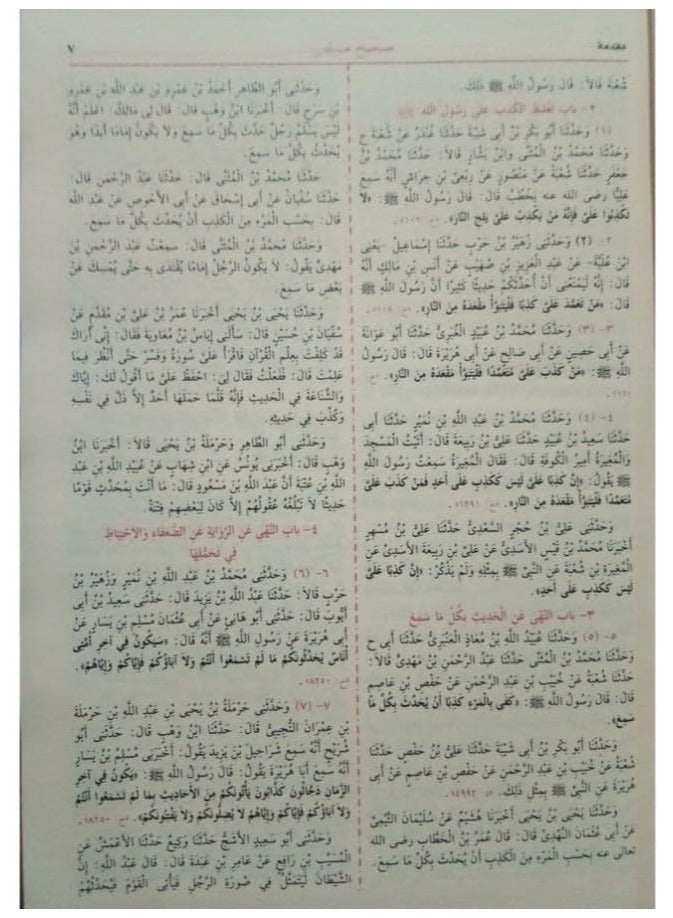 مقدمة
صحيح مسلم
٧
شُعْبَةَ قَالاَ: قَالَ رَسُولُ اللَّهِ ﷺ ذَلِكَ.
٢- باب تَغْلِيظِ الْكَذِبِ عَلَى رَسُولِ اللَّهِ ﷺ
(١) وَحَدَّثَنَا أَبُو بَكْرِ بْنُ أَبِي شَيْبَةَ حَدَّثَنَا غُنْدَرٌ عَنْ شُعْبَةَ ح
وَحَدَّثَنَا مُحَمَّدُ بْنُ الْمُثَنَّى وَابْنُ بَشَّارٍ قَالاَ: حَدَّثَنَا مُحَمَّدُ بْنُ
جَعْفَرٍ حَدَّثَنَا شُعْبَةُ عَنْ مَنْصُورٍ عَنْ رِبْعِيِّ بْنِ حِرَاشٍ أَنَّهُ سَمِعَ
عَلِيًّا رضى الله عنه يَخْطُبُ قَالَ: قَالَ رَسُولُ اللَّهِ ﷺ: «لاَ
تَكْذِبُوا عَلَىَّ فَإِنَّهُ مَنْ يَكْذِبْ عَلَىَّ يَلِجِ النَّارَ».
٢- (٢) وَحَدَّثَنِي زُهَيْرُ بْنُ حَرْبٍ حَدَّثَنَا إِسْمَاعِيلُ -يَعْنِى
ابْنَ عُلَيَّةَ- عَنْ عَبْدِ الْعَزِيزِ بْنِ صُهَيْبٍ عَنْ أَنَسِ بْنِ مَالِكٍ أَنَّهُ
قَالَ: إِنَّهُ لَيَمْنَعُنِى أَنْ أُحَدِّثَكُمْ حَدِيثًا كَثِيرًا أَنَّ رَسُولَ اللَّهِ ﷺ
قَالَ: «مَنْ تَعَمَّدَ عَلَىَّ كَذِبًا فَلْيَتَبَوَّأْ مَقْعَدَهُ مِنَ النَّارِ».
٣- (٣) وَحَدَّثَنَا مُحَمَّدُ بْنُ عُبَيْدٍ الْغُبَرِىُّ حَدَّثَنَا أَبُو عَوَانَةَ
عَنْ أَبِى حَصِينٍ عَنْ أَبِى صَالِحٍ عَنْ أَبِى هُرَيْرَةَ قَالَ: قَالَ رَسُولُ
اللَّهِ ﷺ: «مَنْ كَذَبَ عَلَىَّ مُتَعَمِّدًا فَلْيَتَبَوَّأْ مَقْعَدَهُ مِنَ النَّارِ».
٤- (٤) وَحَدَّثَنَا مُحَمَّدُ بْنُ عَبْدِ اللَّهِ بْنِ نُمَيْرٍ حَدَّثَنَا أَبِى
حَدَّثَنَا سَعِيدُ بْنُ عُبَيْدٍ حَدَّثَنَا عَلِىُّ بْنُ رَبِيعَةَ قَالَ: أَتَيْتُ الْمَسْجِدَ
وَالْمُغِيرَةُ أَمِيرُ الْكُوفَةِ قَالَ: فَقَالَ الْمُغِيرَةُ سَمِعْتُ رَسُولَ اللَّهِ
ﷺ يَقُولُ: «إِنَّ كَذِبًا عَلَىَّ لَيْسَ كَكَذِبٍ عَلَى أَحَدٍ فَمَنْ كَذَبَ عَلَىَّ
مُتَعَمِّدًا فَلْيَتَبَوَّأْ مَقْعَدَهُ مِنَ النَّارِ».
وَحَدَّثَنِى عَلِىُّ بْنُ حُجْرٍ السَّعْدِىُّ حَدَّثَنَا عَلِىُّ بْنُ مُسْهِرٍ
أَخْبَرَنَا مُحَمَّدُ بْنُ قَيْسٍ الأَسَدِىُّ عَنْ عَلِىِّ بْنِ رَبِيعَةَ الأَسَدِىِّ عَنِ
الْمُغِيرَةِ بْنِ شُعْبَةَ عَنِ النَّبِىِّ ﷺ بِمِثْلِهِ وَلَمْ يَذْكُرْ: «إِنَّ كَذِبًا عَلَىَّ
لَيْسَ كَكَذِبٍ عَلَى أَحَدٍ».
٣- باب النَّهْىِ عَنِ الْحَدِيثِ بِكُلِّ مَا سَمِعَ
٥- (٥) وَحَدَّثَنَا عُبَيْدُ اللَّهِ بْنُ مُعَاذٍ الْعَنْبَرِىُّ حَدَّثَنَا أَبِى ح
وَحَدَّثَنَا مُحَمَّدُ بْنُ الْمُثَنَّى حَدَّثَنَا عَبْدُ الرَّحْمَنِ بْنُ مَهْدِىٍّ قَالاَ:
حَدَّثَنَا شُعْبَةُ عَنْ خُبَيْبِ بْنِ عَبْدِ الرَّحْمَنِ عَنْ حَفْصِ بْنِ عَاصِمٍ
قَالَ: قَالَ رَسُولُ اللَّهِ ﷺ: «كَفَى بِالْمَرْءِ كَذِبًا أَنْ يُحَدِّثَ بِكُلِّ مَا
سَمِعَ».
وَحَدَّثَنَا أَبُو بَكْرِ بْنُ أَبِى شَيْبَةَ حَدَّثَنَا عَلِىُّ بْنُ حَفْصٍ حَدَّثَنَا
شُعْبَةُ عَنْ خُبَيْبِ بْنِ عَبْدِ الرَّحْمَنِ عَنْ حَفْصِ بْنِ عَاصِمٍ عَنْ أَبِى
هُرَيْرَةَ عَنِ النَّبِىِّ ﷺ بِمِثْلِ ذَلِكَ.
وَحَدَّثَنَا يَحْيَى بْنُ يَحْيَى أَخْبَرَنَا هُشَيْمٌ عَنْ سُلَيْمَانَ التَّيْمِىِّ
عَنْ أَبِى عُثْمَانَ النَّهْدِىِّ قَالَ: قَالَ عُمَرُ بْنُ الْخَطَّابِ رضى الله
تعالى عنه بِحَسْبِ الْمَرْءِ مِنَ الْكَذِبِ أَنْ يُحَدِّثَ بِكُلِّ مَا سَمِعَ.
وَحَدَّثَنِى أَبُو الطَّاهِرِ أَحْمَدُ بْنُ عَمْرِو بْنِ عَبْدِ اللَّهِ بْنِ عَمْرِو
بْنِ سَرْحٍ قَالَ: أَخْبَرَنَا ابْنُ وَهْبٍ قَالَ: قَالَ لِى مَالِكٌ: اعْلَمْ أَنَّهُ
لَيْسَ يَسْلَمُ رَجُلٌ حَدَّثَ بِكُلِّ مَا سَمِعَ وَلاَ يَكُونُ إِمَامًا أَبَدًا وَهُوَ
يُحَدِّثُ بِكُلِّ مَا سَمِعَ.
حَدَّثَنَا مُحَمَّدُ بْنُ الْمُثَنَّى قَالَ: حَدَّثَنَا عَبْدُ الرَّحْمَنِ قَالَ:
حَدَّثَنَا سُفْيَانُ عَنْ أَبِى إِسْحَاقَ عَنْ أَبِى الأَحْوَصِ عَنْ عَبْدِ اللَّهِ
قَالَ: بِحَسْبِ الْمَرْءِ مِنَ الْكَذِبِ أَنْ يُحَدِّثَ بِكُلِّ مَا سَمِعَ.
وَحَدَّثَنَا مُحَمَّدُ بْنُ الْمُثَنَّى قَالَ: سَمِعْتُ عَبْدَ الرَّحْمَنِ بْنَ
مَهْدِىٍّ يَقُولُ: لاَ يَكُونُ الرَّجُلُ إِمَامًا يُقْتَدَى بِهِ حَتَّى يُمْسِكَ عَنْ
بَعْضِ مَا سَمِعَ.
وَحَدَّثَنَا يَحْيَى بْنُ يَحْيَى أَخْبَرَنَا عُمَرُ بْنُ عَلِىِّ بْنِ مُقَدَّمٍ عَنْ
سُفْيَانَ بْنِ حُسَيْنٍ قَالَ: سَأَلَنِى إِيَاسُ بْنُ مُعَاوِيَةَ فَقَالَ: إِنِّى أَرَاكَ
قَدْ كَلِفْتَ بِعِلْمِ الْقُرْآنِ فَاقْرَأْ عَلَىَّ سُورَةً وَفَسِّرْ حَتَّى أَنْظُرَ فِيمَا
عَلِمْتَ قَالَ: فَفَعَلْتُ فَقَالَ لِى: احْفَظْ عَلَىَّ مَا أَقُولُ لَكَ: إِيَّاكَ
وَالشَّنَاعَةَ فِى الْحَدِيثِ فَإِنَّهُ قَلَّمَا حَمَلَهَا أَحَدٌ إِلاَّ ذَلَّ فِى نَفْسِهِ
وَكُذِّبَ فِى حَدِيثِهِ.
وَحَدَّثَنِى أَبُو الطَّاهِرِ وَحَرْمَلَةُ بْنُ يَحْيَى قَالاَ: أَخْبَرَنَا ابْنُ
وَهْبٍ قَالَ: أَخْبَرَنِى يُونُسُ عَنِ ابْنِ شِهَابٍ عَنْ عُبَيْدِ اللَّهِ بْنِ عَبْدِ
اللَّهِ بْنِ عُتْبَةَ أَنَّ عَبْدَ اللَّهِ بْنَ مَسْعُودٍ قَالَ: مَا أَنْتَ بِمُحَدِّثٍ قَوْمًا
حَدِيثًا لاَ تَبْلُغُهُ عُقُولُهُمْ إِلاَّ كَانَ لِبَعْضِهِمْ فِتْنَةً.
٤- باب النَّهْىِ عَنِ الرِّوَايَةِ عَنِ الضُّعَفَاءِ وَالاِحْتِيَاطِ
فِى تَحَمُّلِهَا
٦- (٦) وَحَدَّثَنِى مُحَمَّدُ بْنُ عَبْدِ اللَّهِ بْنِ نُمَيْرٍ وَزُهَيْرُ بْنُ
حَرْبٍ قَالاَ: حَدَّثَنَا عَبْدُ اللَّهِ بْنُ يَزِيدَ قَالَ: حَدَّثَنِى سَعِيدُ بْنُ أَبِى
أَيُّوبَ قَالَ: حَدَّثَنِى أَبُو هَانِئٍ عَنْ أَبِى عُثْمَانَ مُسْلِمِ بْنِ يَسَارٍ عَنْ
أَبِى هُرَيْرَةَ عَنْ رَسُولِ اللَّهِ ﷺ أَنَّهُ قَالَ: «سَيَكُونُ فِى آخِرِ أُمَّتِى
أُنَاسٌ يُحَدِّثُونَكُمْ مَا لَمْ تَسْمَعُوا أَنْتُمْ وَلاَ آبَاؤُكُمْ فَإِيَّاكُمْ وَإِيَّاهُمْ».
٧- (٧) وَحَدَّثَنِى حَرْمَلَةُ بْنُ يَحْيَى بْنِ عَبْدِ اللَّهِ بْنِ حَرْمَلَةَ
بْنِ عِمْرَانَ التُّجِيبِىُّ قَالَ: حَدَّثَنَا ابْنُ وَهْبٍ قَالَ: حَدَّثَنِى أَبُو
شُرَيْحٍ أَنَّهُ سَمِعَ شَرَاحِيلَ بْنَ يَزِيدَ يَقُولُ: أَخْبَرَنِى مُسْلِمُ بْنُ يَسَارٍ
أَنَّهُ سَمِعَ أَبَا هُرَيْرَةَ يَقُولُ: قَالَ رَسُولُ اللَّهِ ﷺ: «يَكُونُ فِى آخِرِ
الزَّمَانِ دَجَّالُونَ كَذَّابُونَ يَأْتُونَكُمْ مِنَ الأَحَادِيثِ بِمَا لَمْ تَسْمَعُوا أَنْتُمْ
وَلاَ آبَاؤُكُمْ فَإِيَّاكُمْ وَإِيَّاهُمْ لاَ يُضِلُّونَكُمْ وَلاَ يَفْتِنُونَكُمْ».
وَحَدَّثَنِى أَبُو سَعِيدٍ الأَشَجُّ حَدَّثَنَا وَكِيعٌ حَدَّثَنَا الأَعْمَشُ عَنِ
الْمُسَيَّبِ بْنِ رَافِعٍ عَنْ عَامِرِ بْنِ عَبَدَةَ قَالَ: قَالَ عَبْدُ اللَّهِ: إِنَّ
الشَّيْطَانَ لَيَتَمَثَّلُ فِى صُورَةِ الرَّجُلِ فَيَأْتِى الْقَوْمَ فَيُحَدِّثُهُمْ